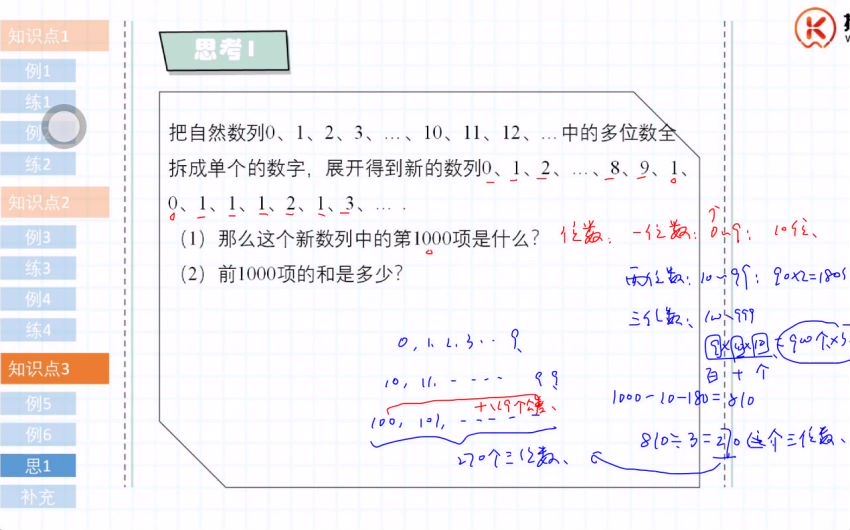 知识点1
例1
练1
例2
练2
知识点2
例3
练3
例4
练4
知识点3
例5
例6
思1
补充
思考1
把自然数列0、1、2、3、…、10、11、12、…中的多位数全
拆成单个的数字，展开得到新的数列0、1、2、…、8、9、1、
0、1、1、1、2、1、3、….
（1）那么这个新数列中的第1000项是什么？
（2）前1000项的和是多少？
位数：一位数：0~9：10位、
两位数：10~99：90×2=180
三位数：100~999
9×10×10=900个×3
百十个
1000-10-180=810
810÷3=270 个三位数、
0,1,2,3…9
10,11,----99
100,101,------
270个三位数、